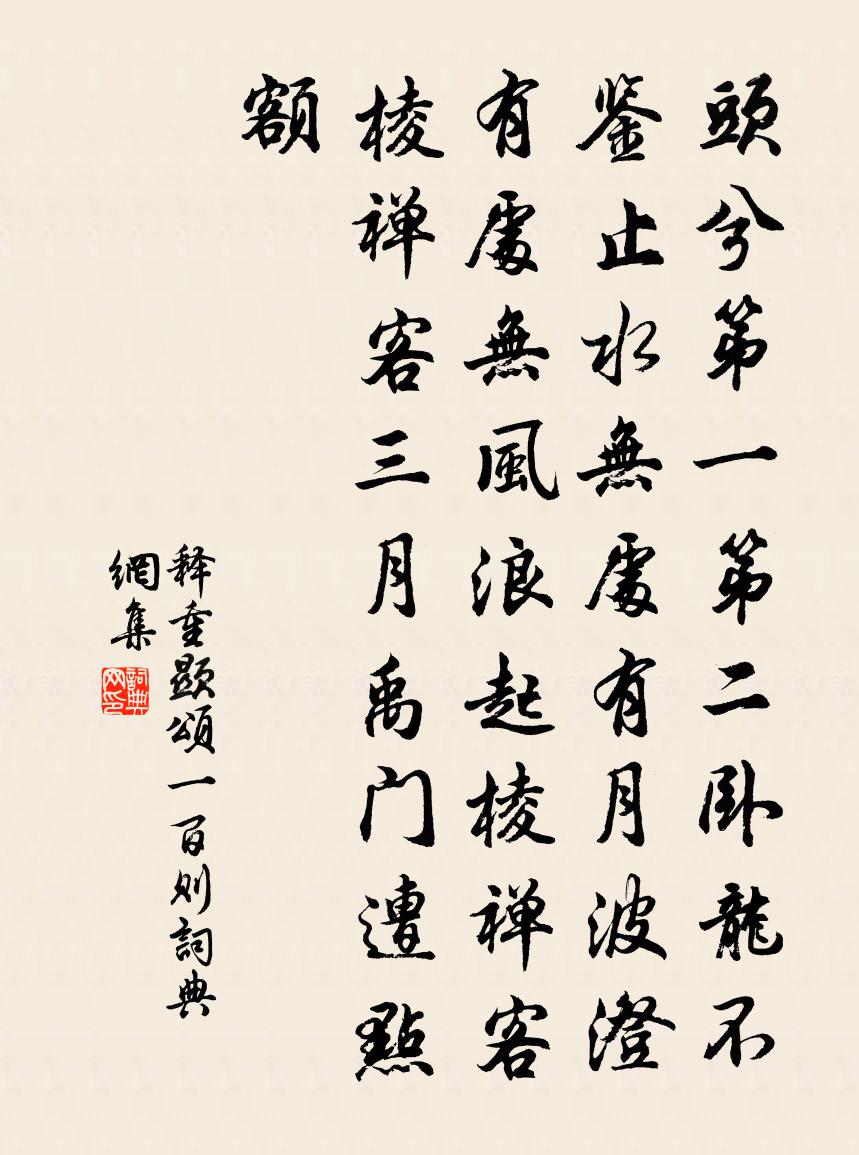 頭兮第一第二卧龍不
鉴止水無處有月波澄
有處無風浪起棱禅客
棱禅客三月禹门遭點
額
释重显頌一百则詞典
網集
詞典网印